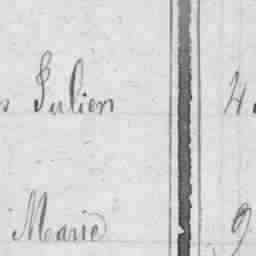 Julien 4
Marie 9